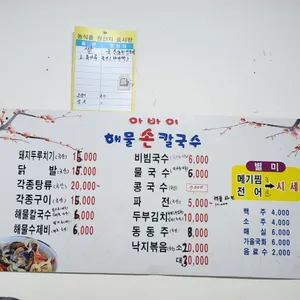 농식품 원산지 표시판
쌀
아바이
해물 손 칼국수
돼지두루치기 15,000
닭 발 15,000
각종탕류 20,000
각종구이 15,000
해물칼국수 6,000
해물수제비 6,000
비빔국수 6,000
물국수 6,000
콩국수
파전 5,000
두부김치 10,000
동동주 8,000
낙지볶음 소20,000
대30,000
별미
메기찜
전어
시세
맥주 4,000
소주 4,000
매실 6,000
가을국화 6,000
음료수 2,000